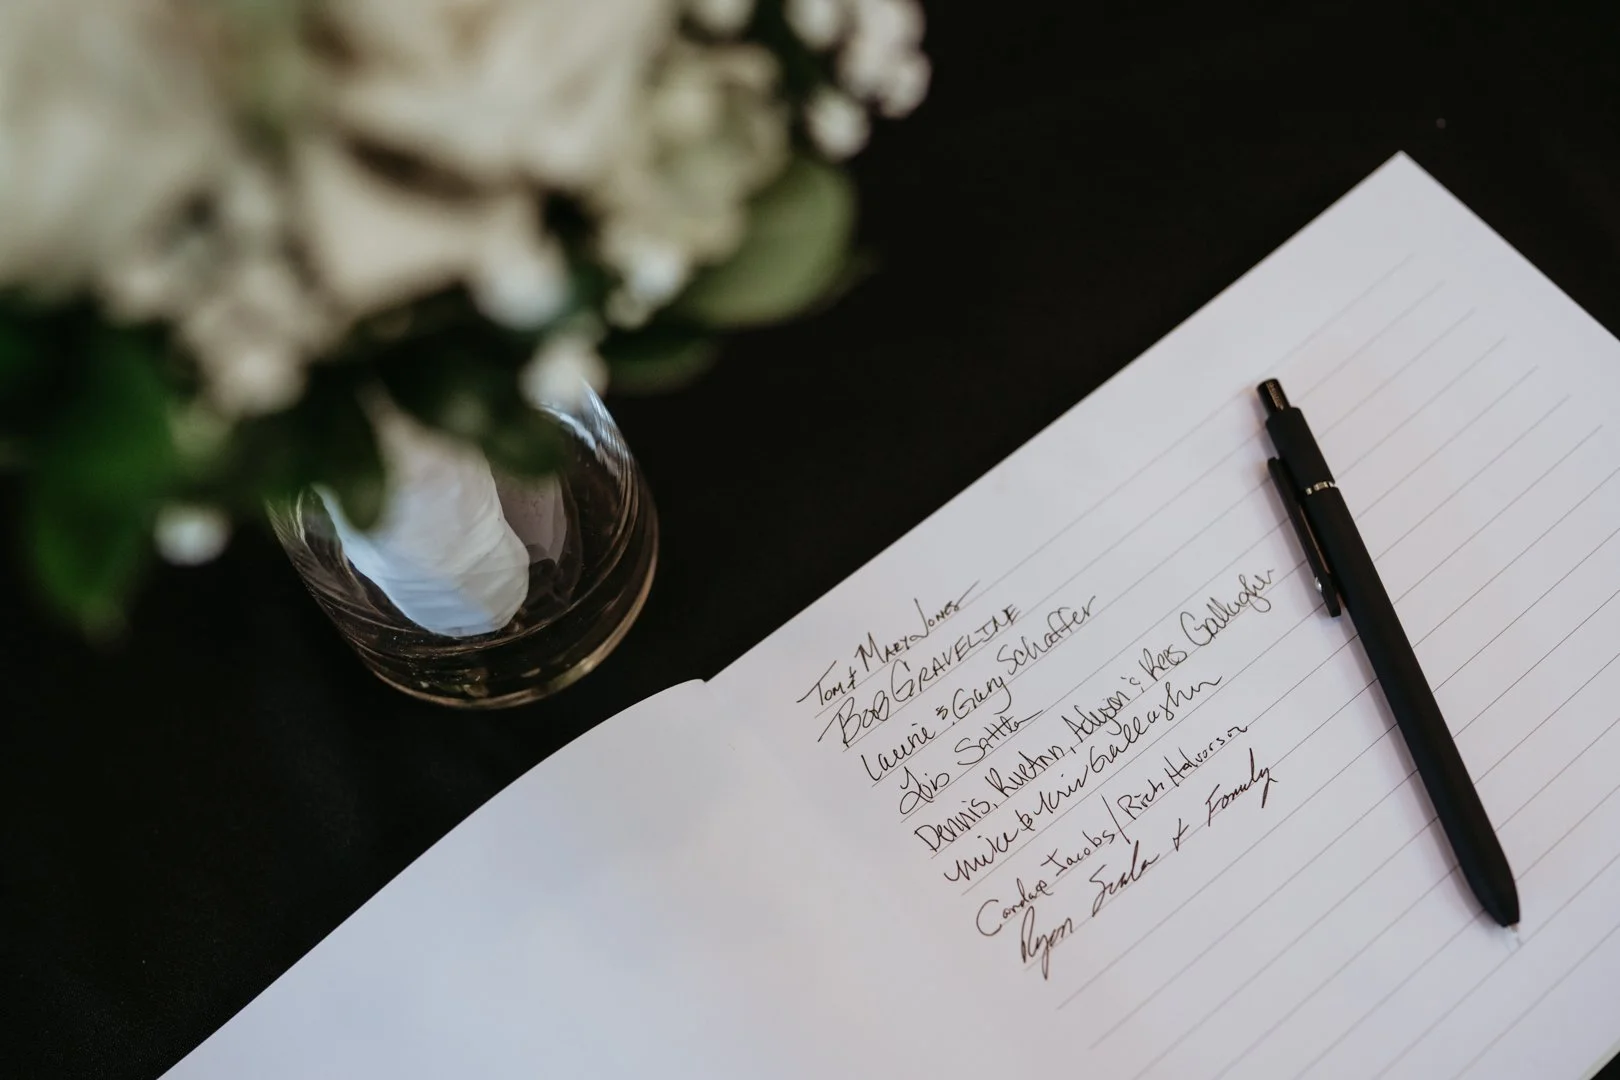 Tom & Mary Jones
BOB GRAVELINE
Laurie & Gary Schaffer
Lois
Dennis, RueAnn, & Rees Gallagher
Mike & Kris Gallagher
Candace Jacobs/Rich Halvorson
Ryan & Family